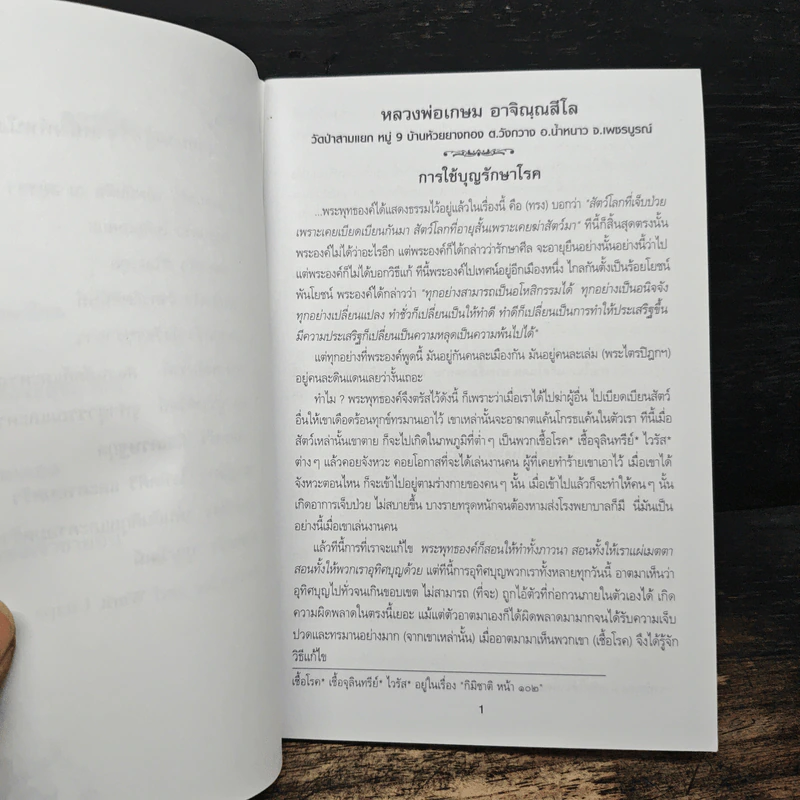 หลวงพ่อเกษม อาจิณฺณสีโล
วัดป่าสามแยก หมู่ 9 บ้านห้วยยางทอง ต.วังกวาง อ.น้ำหนาว จ.เพชรบูรณ์
การใช้บุญรักษาโรค
...พระพุทธองค์ได้แสดงธรรมไว้อยู่แล้วในเรื่องนี้ คือ (ทรง) บอกว่า "สัตว์โลกที่เจ็บป่วย
เพราะเคยเบียดเบียนกันมา สัตว์โลกที่อายุสั้นเพราะเคยฆ่าสัตว์มา" ทีนี้ก็สิ้นสุดตรงนั้น
พระองค์ไม่ได้ว่าอะไรอีก แต่พระองค์ก็ได้กล่าวว่ารักษาศีล จะอายุยืนอย่างนั้นอย่างนี้ว่าไป
แต่พระองค์ก็ไม่ได้บอกวิธีแก้ ทีนี้พระองค์ไปเทศน์อยู่อีกเมืองหนึ่ง ไกลกันตั้งเป็นร้อยโยชน์
พันโยชน์ พระองค์ได้กล่าวว่า "ทุกอย่างสามารถเป็นอโหสิกรรมได้ ทุกอย่างเป็นอนิจจัง
ทุกอย่างเปลี่ยนแปลง ทำชั่วก็เปลี่ยนเป็นให้ทำดี ทำดีก็เปลี่ยนเป็นการทำให้ประเสริฐขึ้น
มีความประเสริฐก็เปลี่ยนเป็นความหลุดเป็นความพ้นไปได้"
แต่ทุกอย่างที่พระองค์พูดนี้ มันอยู่กันคนละเมืองกัน มันอยู่คนละเล่ม (พระไตรปิฎกฯ)
อยู่คนละดินแดนเลยว่างั้นเถอะ
ทำไม ? พระพุทธองค์จึงตรัสไว้ดังนี้ ก็เพราะว่าเมื่อเราได้ไปฆ่าผู้อื่น ไปเบียดเบียนสัตว์
อื่นให้เขาเดือดร้อนทุกข์ทรมานเอาไว้ เขาเหล่านั้นจะอาฆาตแค้นโกรธแค้นในตัวเรา ทีนี้เมื่อ
สัตว์เหล่านั้นเขาตาย ก็จะไปเกิดในภพภูมิที่ต่ำ ๆ เป็นพวกเชื้อโรค* เชื้อจุลินทรีย์* ไวรัส*
ต่าง ๆ แล้วคอยจังหวะ คอยโอกาสที่จะได้เล่นงานคน ผู้ที่เคยทำร้ายเขาเอาไว้ เมื่อเขาได้
จังหวะตอนไหน ก็จะเข้าไปอยู่ตามร่างกายของคน ๆ นั้น เมื่อเข้าไปแล้วก็จะทำให้คน ๆ นั้น
เกิดอาการเจ็บป่วย ไม่สบายขึ้น บางรายทรุดหนักจนต้องหามส่งโรงพยาบาลก็มี นี่มันเป็น
อย่างนี้เมื่อเขาเล่นงานคน
แล้วทีนี้การที่เราจะแก้ไข พระพุทธองค์ก็สอนให้ทำทั้งภาวนา สอนทั้งให้เราแผ่เมตตา
สอนทั้งให้พวกเราอุทิศบุญด้วย แต่ทีนี้การอุทิศบุญพวกเราทั้งหลายทุกวันนี้ อาตมาเห็นว่า
อุทิศบุญไปทั่วจนเกินขอบเขต ไม่สามารถ (ที่จะ) ถูกไอ้ตัวที่ก่อกวนภายในตัวเองได้ เกิด
ความผิดพลาดในตรงนี้เยอะ แม้แต่ตัวอาตมาเองก็ได้ผิดพลาดมามากจนได้รับความเจ็บ
ปวดและทรมานอย่างมาก (จากเขาเหล่านั้น) เมื่ออาตมามาเห็นพวกเขา (เชื้อโรค) จึงได้รู้จัก
วิธีแก้ไข
เชื้อโรค* เชื้อจุลินทรีย์* ไวรัส* อยู่ในเรื่อง "กิมิชาติ หน้า ๑๐๒"
1